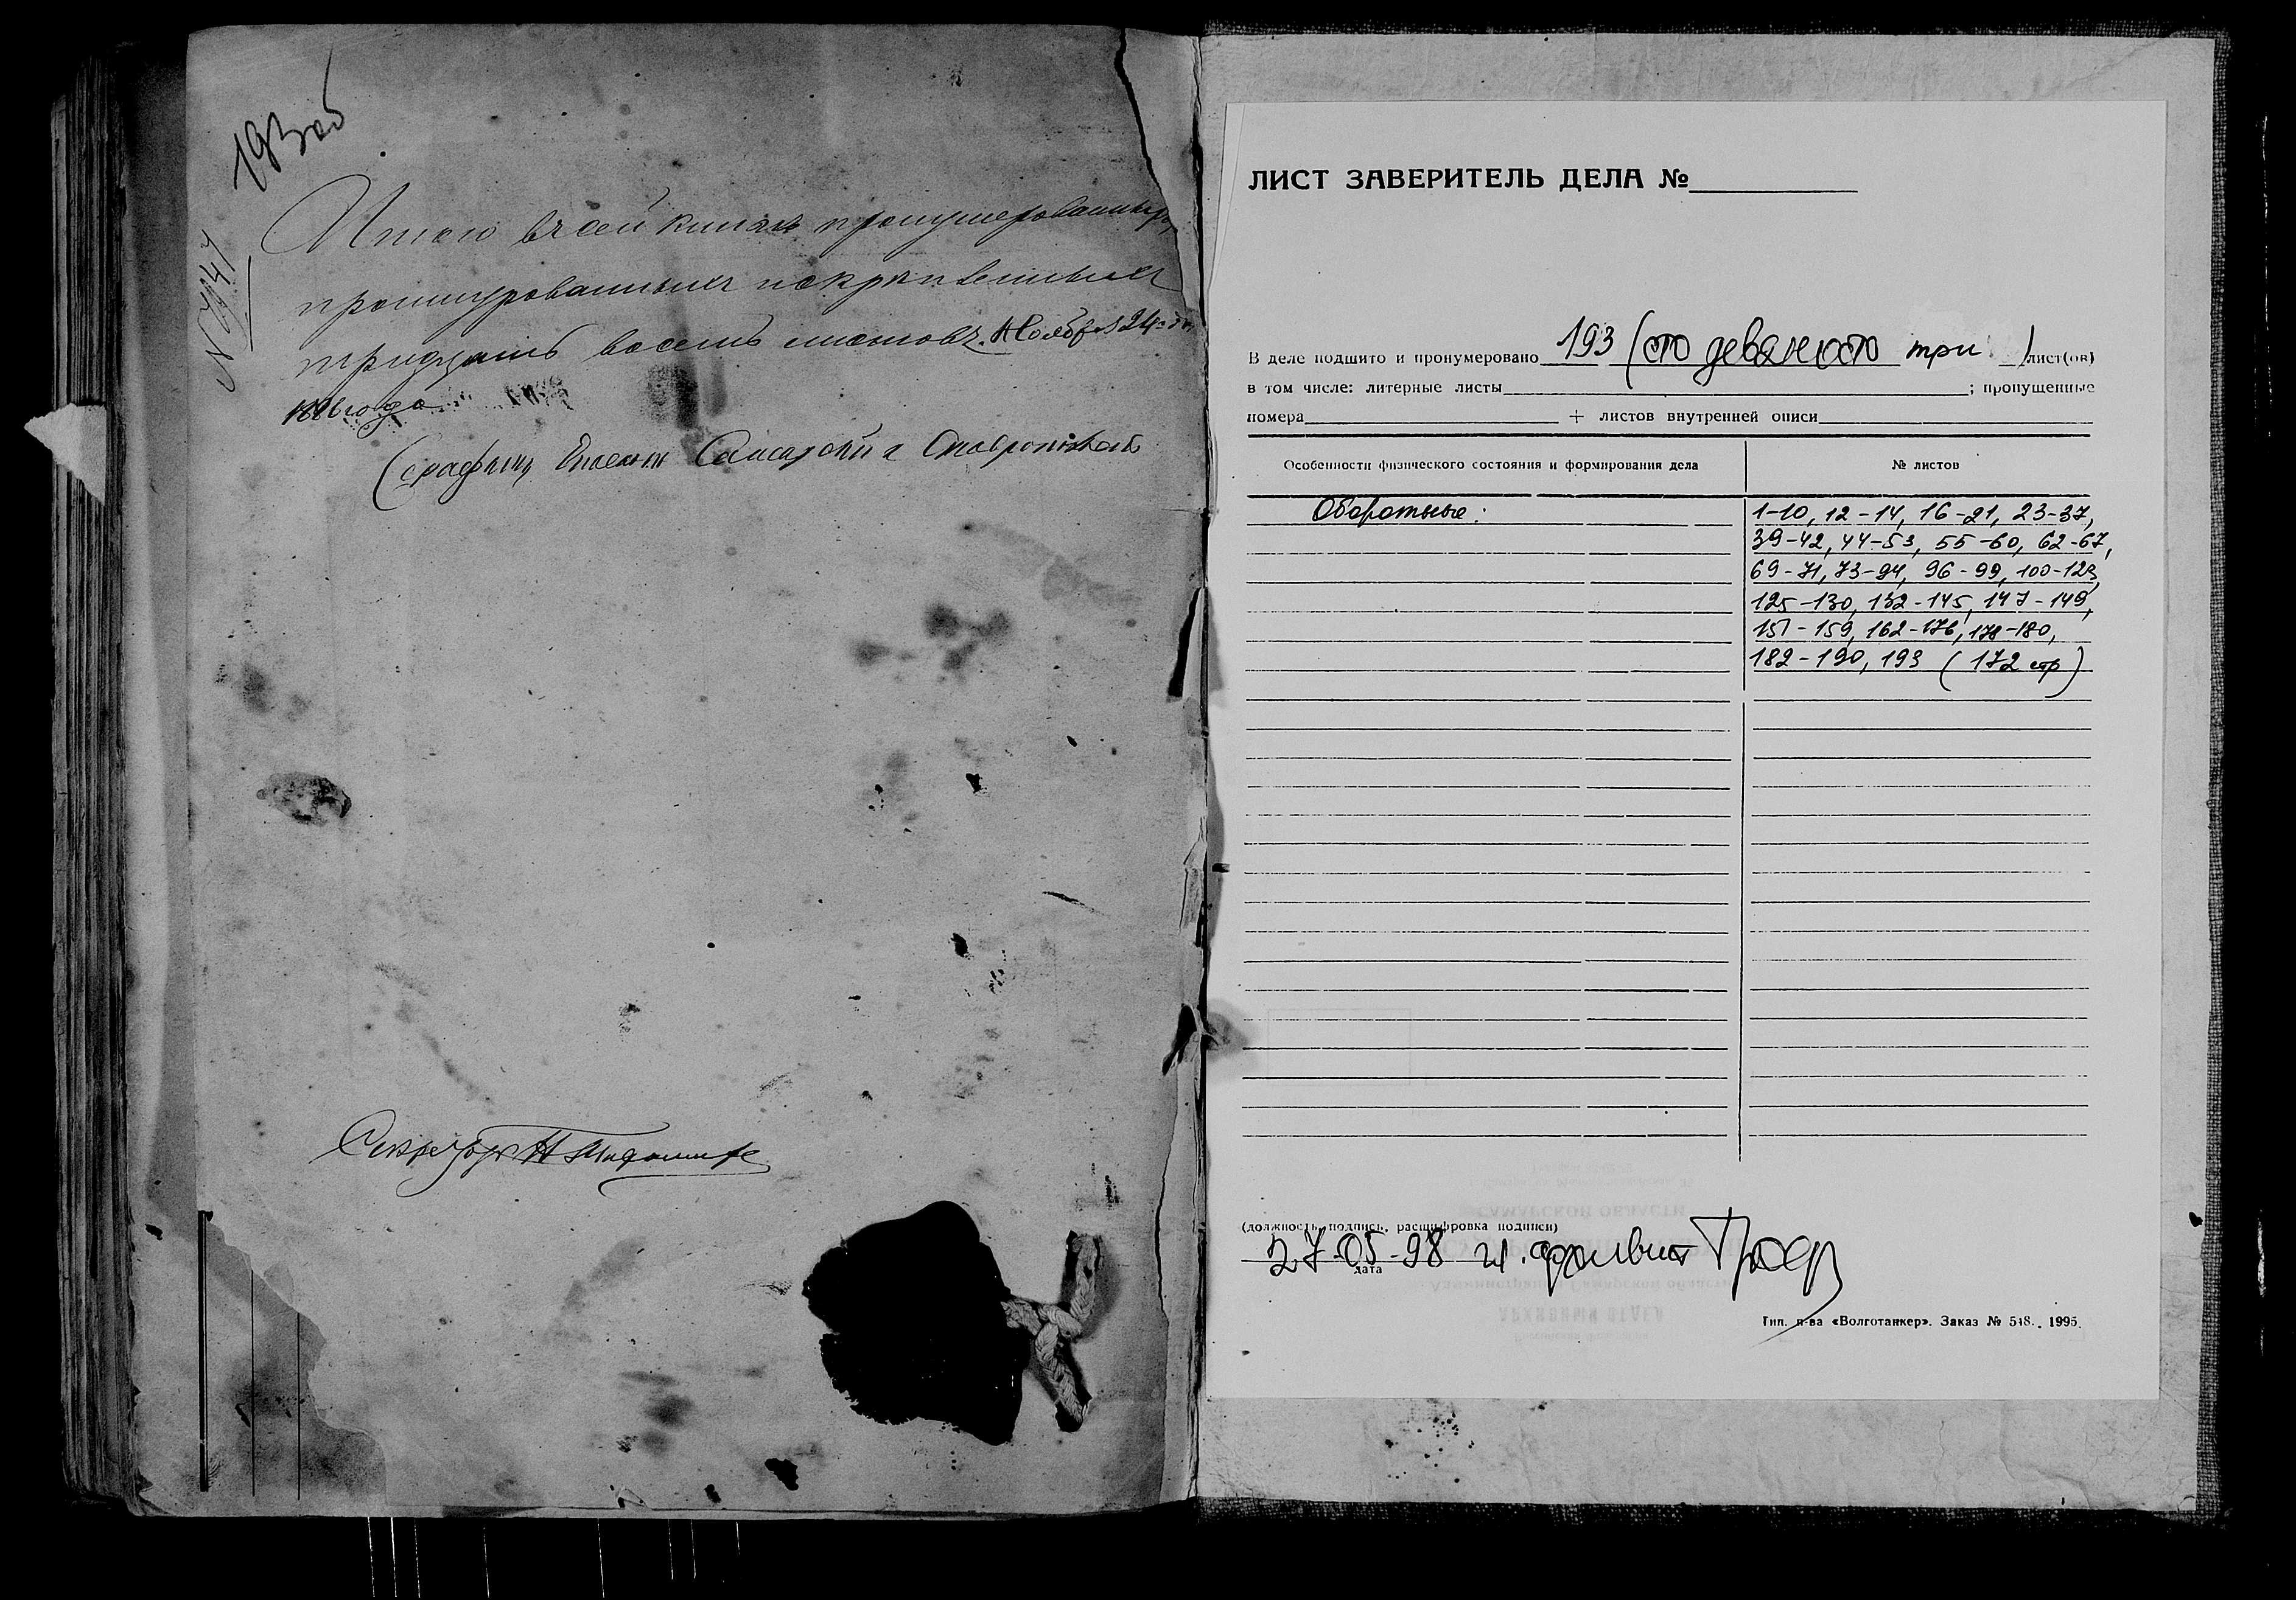 193 об
Итого въ сей книгѣ пронумерованныхъ,
прошнурованныхъ и скрѣпленныхъ
тридцать восемь листовъ. Ноября 24 дня
1886 года
Серафимъ Епископъ Самарскій и Ставропольскій
Секретарь Н
ЛИСТ ЗАВЕРИТЕЛЬ ДЕЛА №
В деле подшито и пронумеровано 193 (сто девяносто три) лист(ов)
в том числе: литерные листы ; пропущенные
номера + листов внутренней описи
Особенности физического состояния и формирования дела
№ листов
Оборотные:
1-10, 12-14, 16-21, 23-37,
39-42, 44-53, 55-60, 62-67,
69-71, 73-94, 96-99, 100-123,
125-130, 132-145, 147-149,
151-159, 162-176, 178-180,
182-190, 193 (172 стр)
(должность, подпись, расшифровка подписи)
27-05-98
дата
Тип. п-ва «Волготанкер». Заказ № 518. 1995.